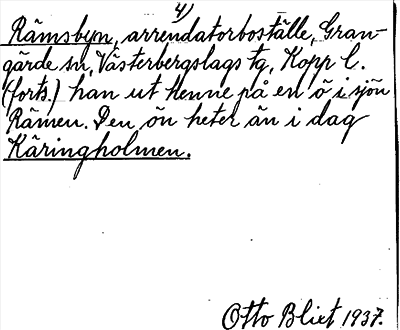 4)
Rämsbyn, arrendatorboställe, Gran-
gärde sn, Västerbergslags tg, Kopp l.
(forts.) han ut henne på en ö i sjön
Rämen. Den ön heter än i dag
Käringholmen.
Otto Blixt 1937.